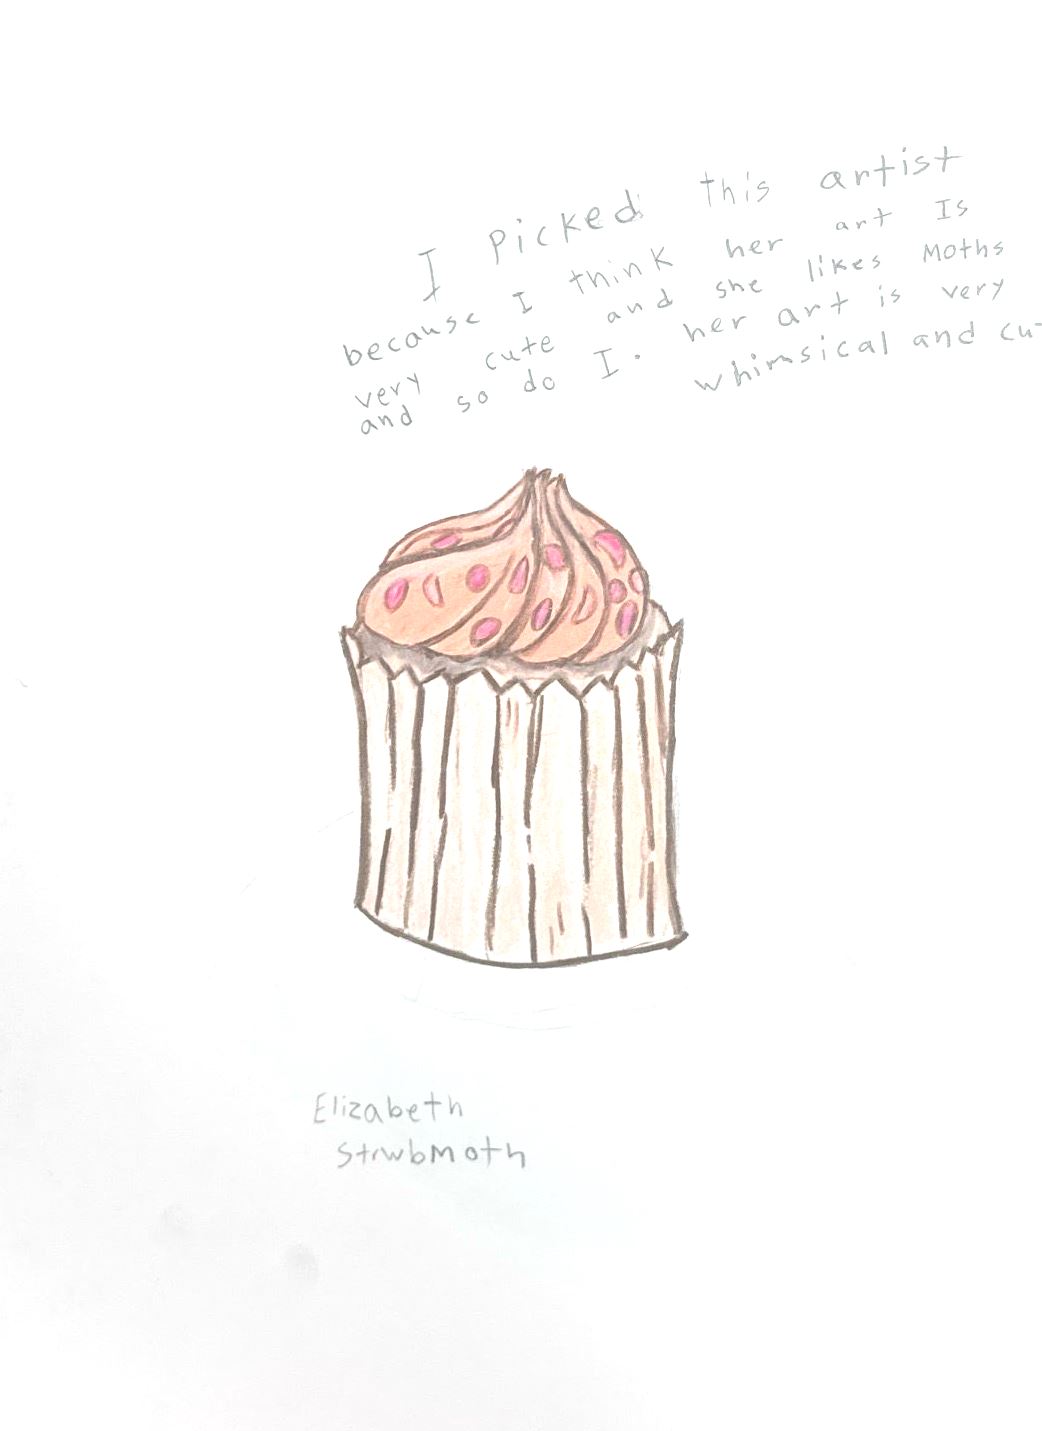 I Picked this artist
because I think her art Is
very cute and she likes Moths
and so do I. her art is very
whimsical and cu-
Elizabeth
StrwbMoth